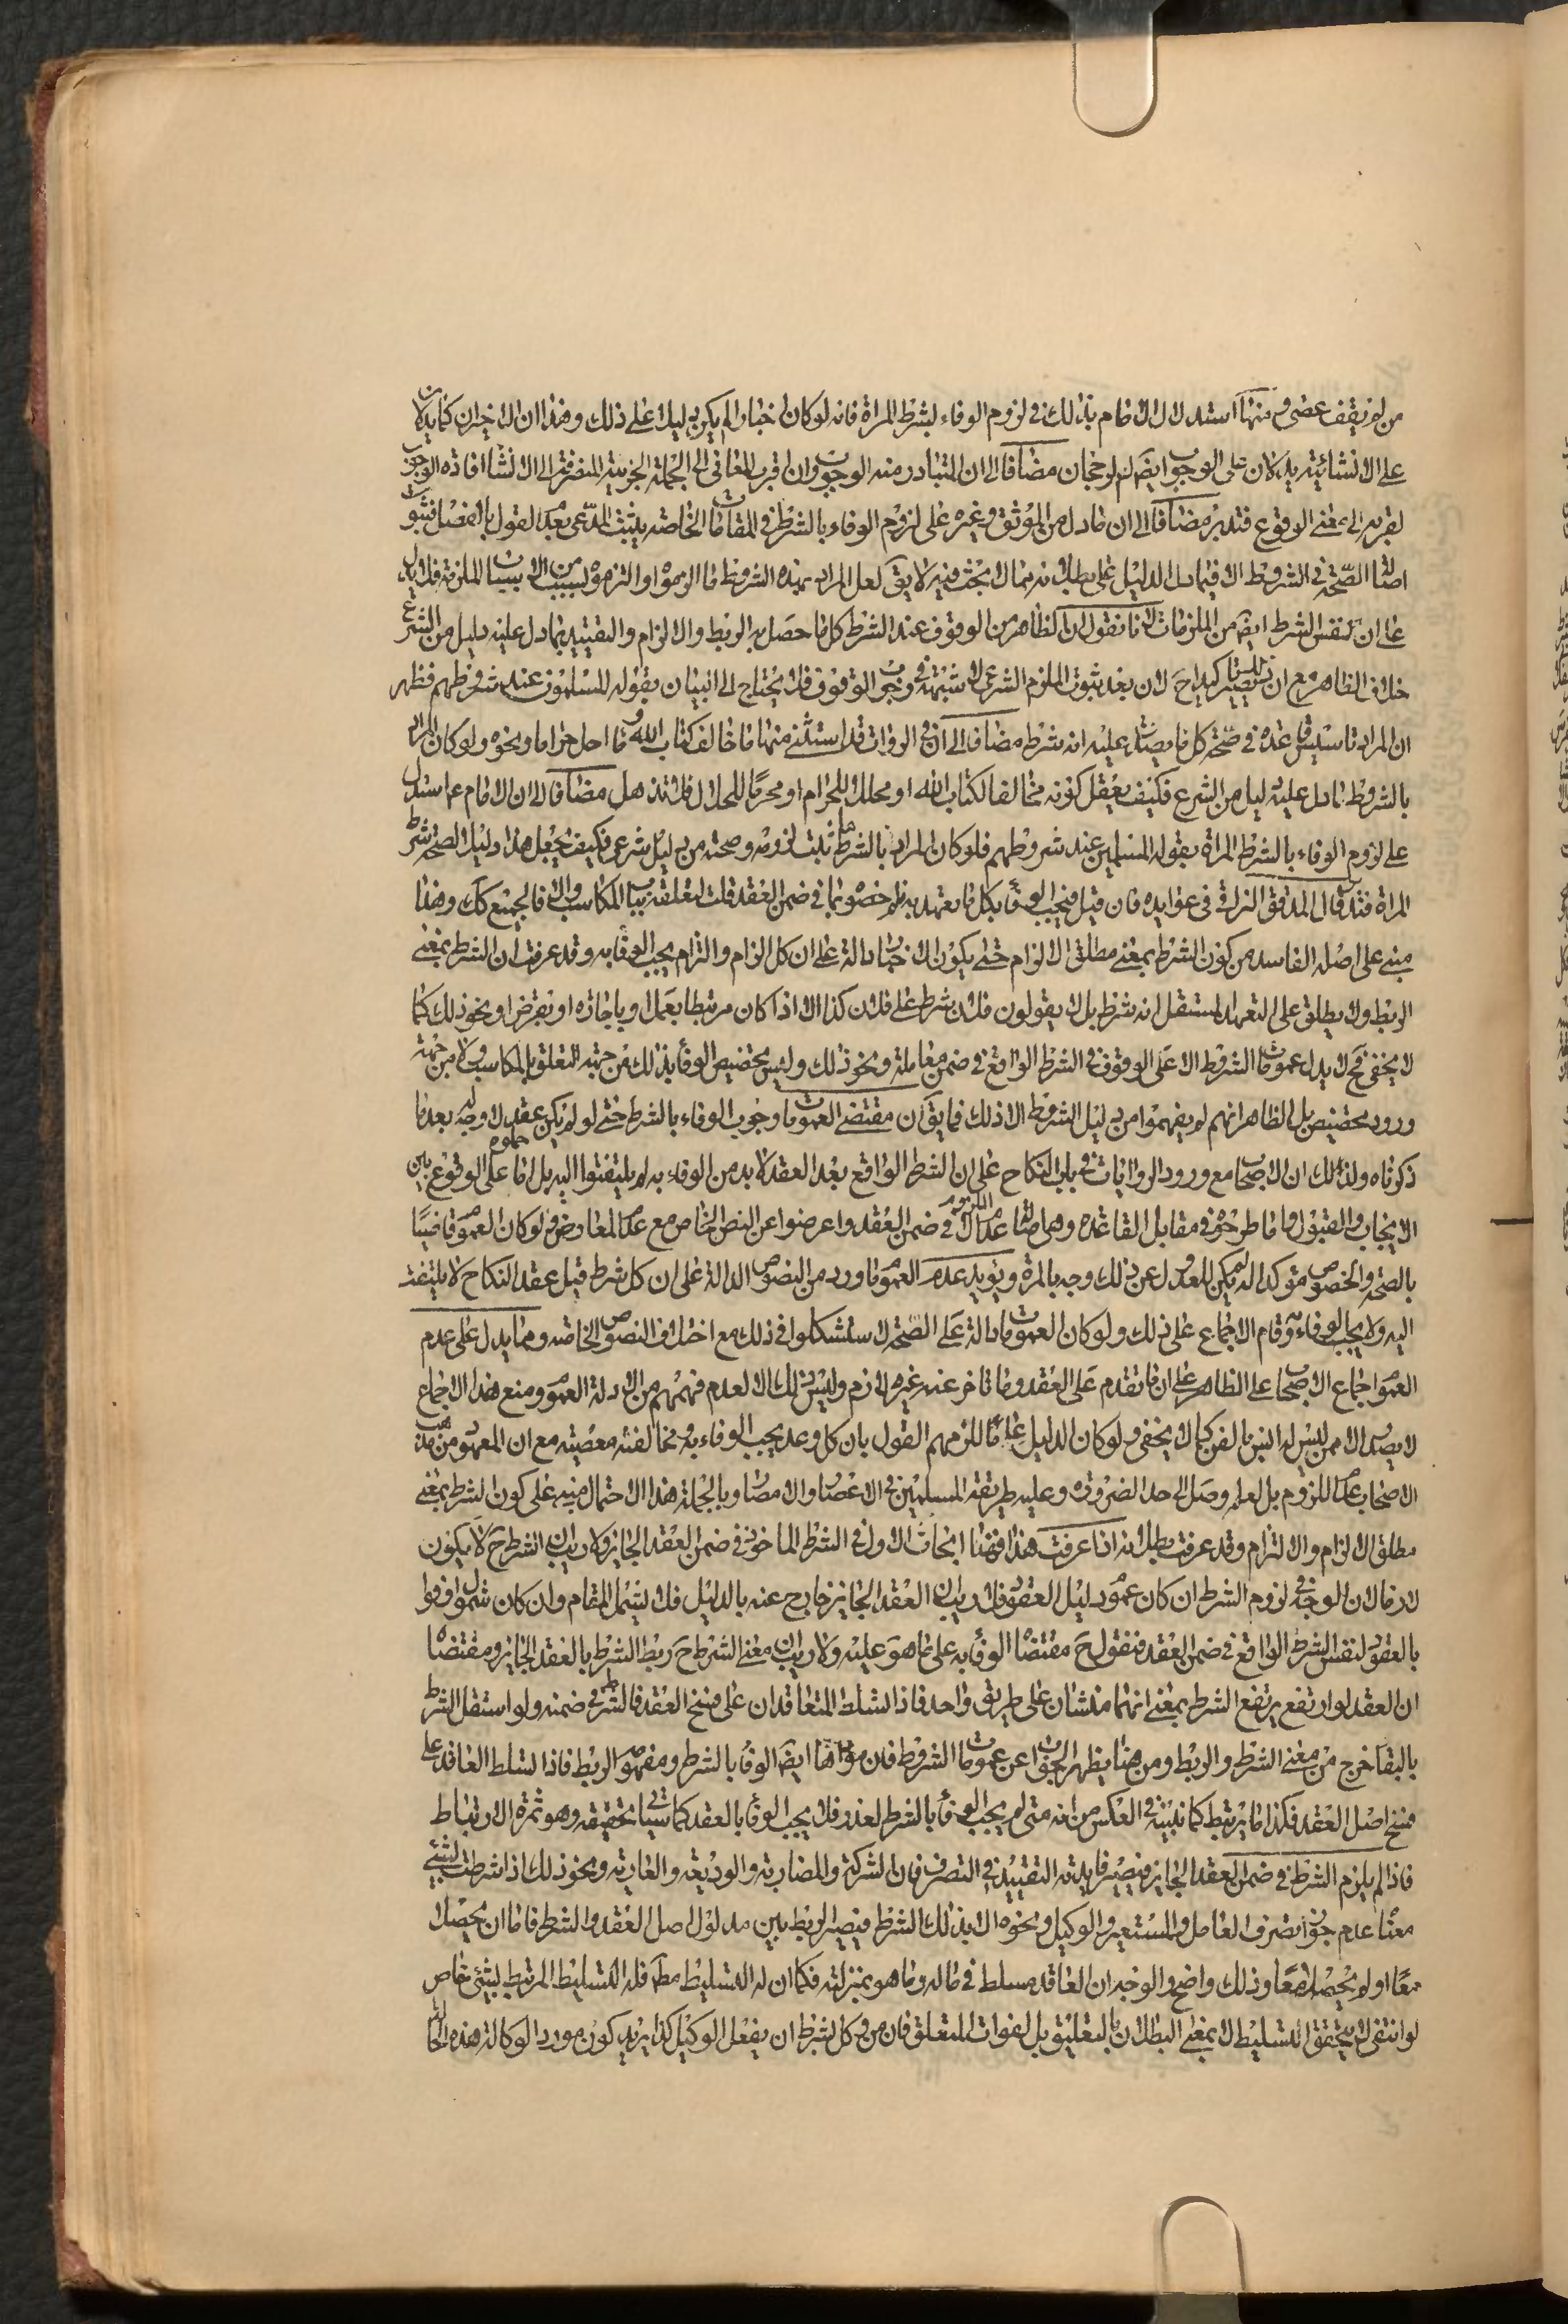 من لم يقف عصى ومنها استدلال الامام بذلك في لزوم الوفاء بشرط المراة فانه لو كان اخبارا لم يكن دليلا على ذلك وهذا ان الاخيران كما يدلان
على الانشائية يدلان على الوجوب ايضا لو حجان مضافا الى ان المتبادر منه الوجوب وان اقرب المعاني الى الجملة الخبرية المنصرفة الى الانشاء افاده الوجوب
لقربه الى معنى الوقوع فتدبر مضافا الى ان ما دل من الموثق وغيره على لزوم الوفاء بالشرط في المقامات الخاصة يثبت المدعى بعدم القول بالفصل فثبوت
اصالة الصحة في الشروط الا فيما دل الدليل على بطلانه مما لا بحث فيه لا يق لعل المراد بهذه الشروط ما الزموه او التزموه بسبب من الاسباب الملزمة فلا يدل
على ان نفس الشرط ايضا من الملزمات لانا نقول ان الظاهر من الوقوف عند الشرط كل ما حصل به الربط والالزام والتقييد بما دل عليه دليل من الشرع
خلاف الظاهر مع ان ذلك يصير تاكيدا ح لان بعد ثبوت الملزم الشرعي لا شبهة في وجوب الوقوف فلا يحتاج الى البيان بقوله المسلمون عند شروطهم فظهر
ان المراد تاسيس قاعدة في صحة كل ما يصدق عليه انه شرط مضافا الى ان في الروايات قد استثنى منها ما خالف كتاب الله وما احل حراما ونحوه ولو كان المراد
بالشروط ما دل عليه دليل من الشرع فكيف يعقل كونه مخالفا لكتاب الله او محللا للحرام او محرما للحلال فلا تذهل مضافا الى ان الامام ع استدل
على لزوم الوفاء بالشرط المراة بقوله المسلمين عند شروطهم فلو كان المراد بالشرط ما ثبت لزومه وصحته من دليل شرعي فكيف يجعل هذا دليل الصحة شرط
المراة فتدبر قال المدقق النراقي في عوايده فان قيل فيجب الوفاء بكل ما يتعهد به فلم خصوا بما في ضمن العقد قلت لتعلقه بباب المكاسب والا فالجميع كك وهذا
مبنى على اصله الفاسد من كون الشرط بمعنى مطلق الالزام حتى يكون الاخبار دالة على ان كل الزام والتزام يجب الوفاء به وقد عرفت ان الشرط بمعنى
الربط ولا يطلق على التعهد المستقل انه شرط بل لا يقولون فلان شرط على فلان كذا الا اذا كان مرتبطا بعمل او باجازه او بقرض او نحو ذلك كما
لا يخفى فح لا يدل عمومات الشرط الا على الوقوف في الشرط الواقع في ضمن معاملة ونحو ذلك وليس تخصيص الوفاء بذلك من جهة التعلق بالمكاسب ولا من جهة
ورود مخصص بل الظاهر انهم لم يفهموا من دليل الشروط الا ذلك فما يق ان مقتضى العمومات وجوب الوفاء بالشرط حتى لو لم يكن عقد لا وجه له بعد ما
ذكرناه ولذلك ان الاصحاب مع ورود الروايات في باب النكاح على ان الشرط الواقع بعد العقد لا بد من الوفاء به لم يلتفتوا اليه بل اما حملوه على الوقوع بين
الايجاب والقبول واما طرحوه في مقابل القاعدة وهي اصالة عدم اللزوم الا في ضمن العقد واعرضوا عن النص الخاص مع عدم المعارض ولو كان العموم قاضيا
بالصحة والخصوص مؤكدا له لم يكن للعدول عن ذلك وجه بالمرة ويؤيد عدم العموم ما ورد من النصوص الدالة على ان كل شرط قبل عقد النكاح لا يلتفت
اليه ولا يجب الوفاء به وقام الاجماع على ذلك ولو كان العمومات دالة على الصحة لاستشكلوا في ذلك مع اختلاف النصوص الخاصة ومما يدل على عدم
العموم اجماع الاصحاب على الظاهر على ان ما تقدم على العقد وما تاخر عنه غير لازم وليس ذلك الا لعدم فهمهم من الادلة العموم ومنع هذا الاجماع
لا يصدر الا ممن ليس له انس بالفن كما لا يخفى ولو كان الدليل عاما للزمهم القول بان كل وعد يجب الوفاء به ومخالفته معصية مع ان المعهود من مذهب
الاصحاب عدم اللزوم بل لعله وصل الى حد الضرورة وعليه طريقة المسلمين في الاعصار والامصار وبالجملة هذا الاحتمال مبنى على كون الشرط بمعنى
مطلق الالزام والالتزام وقد عرفت بطلانه اذا عرفت هذا فهنا ابحاث الاول في الشرط الماخوذ في ضمن العقد الجايز ولا ريب ان الشرط ح لا يكون
لازما لان الوجه في لزوم الشرط ان كان عموم دليل العقود فلا ريب ان العقد الجايز خارج عنه بالدليل فلا يشمل المقام وان كان شمول اوفوا
بالعقود لنفس الشرط الواقع في ضمن العقد فنقول ح مقتضاه الوفاء به على ما هو عليه ولا ريب ان معنى الشرط ح ربط الشرط بالعقد الجايز ومقتضاه
ان العقد لو ارتفع يرتفع الشرط بمعنى انهما منشان على طريق واحد فاذا تسلط المتعاقدان على فسخ العقد فالشرط في ضمنه ولو استقل الشرط
بالبقاء خرج من معنى الشرط والربط ومن هنا يظهر الجواب عن عمومات الشروط فان مؤداها ايضا الوفاء بالشرط ومفهوم الربط فاذا تسلط العاقد على
فسخ اصل العقد فكذا ما يرتبط كما نبينه في العكس من انه متى لم يجب الوفاء بالشرط لعذر فلا يجب الوفاء بالعقد كما سياتي تحقيقه وهو ثمرة الارتباط
فاذا لم يلزم الشرط في ضمن العقد الجايز فيصير فايدته التقييد في التصرف فان الشركة والمضاربة والوديعة والعارية ونحو ذلك اذا شرطت بشيء
معناه عدم جواز تصرف العامل والمستعير والوكيل ونحوه الا بذلك الشرط فيصير الربط بين مدلول اصل العقد والشرط فاما ان يحصلا
معا او لم يحصلا معا وذلك واضح والوجه ان العاقد مسلط في ماله وما هو بمنزلته فكما ان له التسليط مطلقا فله التسليط المرتبط بشيء خاص
لو انتفى لا يتحقق التسليط لا بمعنى البطلان بالتعليق بل لفوات المتعلق فان من وكل بشرط ان يفعل الوكيل كذا يريد كون مورد الوكالة هذه الحالة